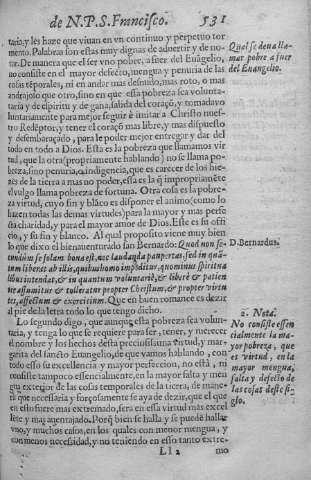 de N.P.S. Francisco. 531
taria, y les haze que viuan en vn continuo y perpetuo tor
mento. Palabras son estas muy dignas de aduertir y de no-
tar. De manera que el ser vno pobre, a fuer del Euãgelio,
no consiste en el mayor defecto, mengua y penuria de las
cosas tẽporales, ni en andar mas desnudo, mas roto, o mas
andrajoso que otro, sino en que esta pobreza sea volunta-
ria y de espiritu y de gana, salida del coraçõ, y tomada vo
luntariamente para mejor seguir è imitar a Christo nuestro
Redẽptor, y tener el coraçõ mas libre, y mas dispuesto
y desembaraçado, para le poder mejor entregar y dar del
todo en todo a Dios. Esta es la pobreza que llamamos vir
tud, que la otra (propriamente hablando) no se llama po-
breza, sino penuria, o indigencia, que es carecer de los bie-
nes de la tierra a mas no poder, esta es la q̃ impropriamẽte
el vulgo llama pobreza de fortuna. Otra cosa es la pobre-
za virtud, cuyo fin y blãco es disponer el animo (como lo
hazen todas las demas virtudes) para la mayor y mas perfe
cta charidad, y para el mayor amor de Dios. Este es su ofi
cio, y su fin y blanco. Al qual proposito viene muy bien
lo que dixo el bienauenturado san Bernardo: Quod non se-
cundum se solam bona est, nec laudanda paupertas, sed in quã-
tum liberat ab illis, quibus homo impeditur, quominus spiritua
libus intendat, & in quantum voluntariè, & liberè & patien
ter assumitur & toleratur propter Christum, & propter virtu
tes, affectum & exercitium. Que en buen romance es dezir
al pie de la letra todo lo que tengo dicho.
Lo segundo digo, que aunque esta pobreza sea volun-
taria, y tenga lo que se requiere para ser, tener, y merecer
el nombre y los hechos desta preciosissima virtud, y mar-
garita del sancto Euangelio, de que vamos hablando, con
todo esso su excelencia y mayor perfeccion, no està, ni
consiste tampoco essencialmente, en la mayor falta y men
gua exterior de las cosas temporales de la tierra, de mane-
ra que necessaria y forçosamente se aya de dezir, que el que
en esto fuere mas extremado, sera en esta virtud mas excel
lente y mas auentajado. Porq̃ bien se halla y se puede hallar
vno, y muchos casos, en los quales con menor mengua, y
con menos necessidad, y no teniendo en esso tanto extre-
Ll 2 mo
Qual se deua lla-
mar pobre a fuer
del Euangelio.
D. Bernardus.
2. Nota.
No consiste essen
cialmente la ma-
yor pobreza, que
es virtud, en la
mayor mengua,
falta y defecto de
las cosas deste si-
glo.